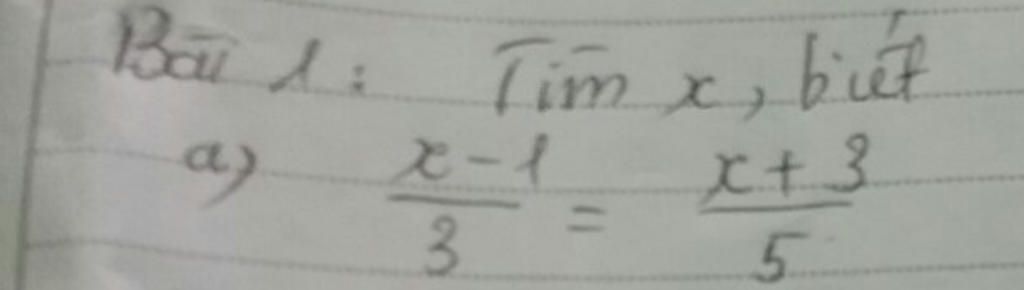 Bài 1: Tìm x, biết
a) \frac{x-1}{3} = \frac{x+3}{5}